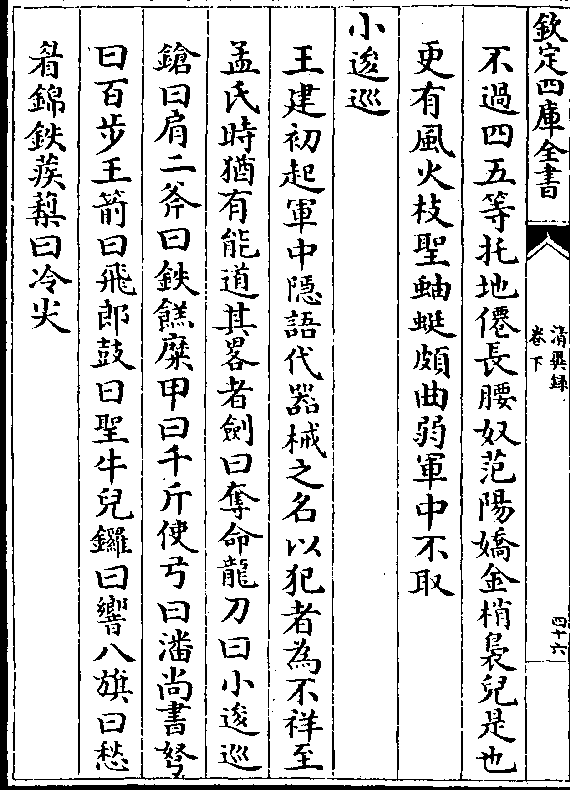 欽定四庫全書
清異録
卷下
四十六
不過四五等托地僊長腰奴范陽嬌金梢裊兒是也
更有風火枝聖蚰蜒頗曲弱軍中不取
小逡巡
王建初起軍中隠語代器械之名以犯者為不祥至
孟氏時猶有能道其畧者劍曰奪命龍刀曰小逡巡
鎗曰肩二斧曰鉄餻糜甲曰千斤使弓曰潘尚書弩
曰百步王箭曰飛郎鼓曰聖牛兒鑼曰響八旗曰愁
眉錦鉄蒺蔾曰冷尖